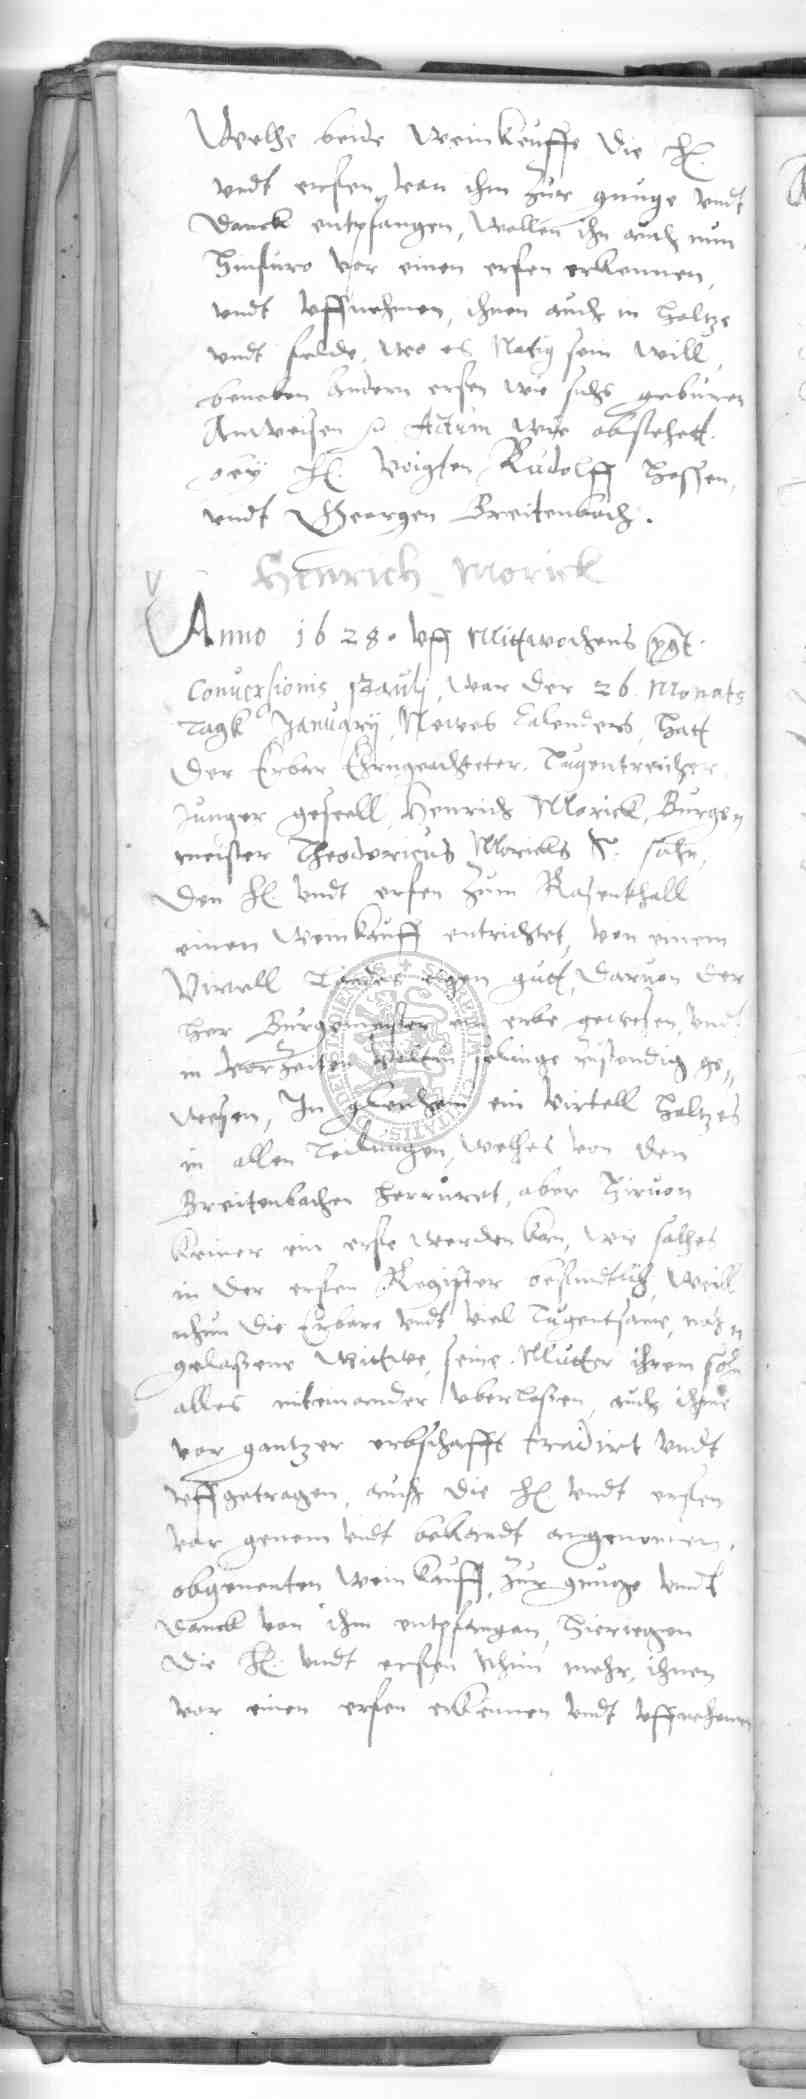 Welche beide Weinkeuffe die H.
undt erfen von ihm zur gnuge undt
danck entpfangen, Wollen ihn auch nun
hinfuro vor einen erfen erkennen,
undt uffnehmen, ihnen auch in holtze
undt felde, wo es Notig sein will,
beneben andern erfen wie sichs geburen
Anweisen Actum wie obstehett.
bey H. Voigten Rudolff Hossen,
undt Georgen Breitenbach.
Henrich Morick
Anno 1628. uff Mittwochens post
Conversionis Pauli, war der 26. Monats
Tagk January, Newes Calenders, hatt
Der Erbar Ehrngeachteter Tugentreicher
Junger gesell, Henrich Morick, Burge
meister Theodoricus Moricks S. sohn,
Den H. undt erfen zum Rasenthall
einen Weinkauff entrichtet, von einem
Virtell Landes eigen gutt, Darvon der
Her Burgemeister ein erbe gewesen, undt
in vorzeiten zustendig ge-,,
wesen, In gleichem ein Virtell Holtzes
in allen Teilungen, welches von den
Breitenbachen herruret, aber hirvon
keiner ein erfe werden kan, wie solches
in der erfen Register befindtlich, Weill
nhun die Erbare undt viel Tugentsame, nach
gelassene Wittwe, seine Mutter ihrem sohn
alles miteinander uberlassen, auch ihme
vor gantzer erbschafft tradirt undt
uffgetragen, auch die H. undt erfen
vor genem undt bekandt angenomen,
obgenenten Weinkauff, zur gnuge undt
Danck von ihm entpfangen, hierwegen
Die H. undt erfen nhun mehr, ihnen
vor einen erfen erkennen undt uffnehmen